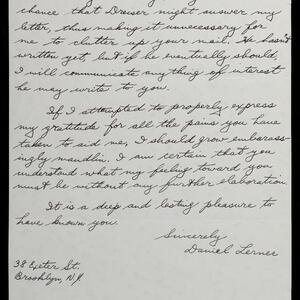 chance that Dreiser might answer my
letter, thus making it unnecessary for
me to clutter up your mail. He hasn't
written yet, but if he eventually should,
I will communicate anything of interest
he may write to you.
If I attempted to properly express
my gratitude for all the pains you have
taken to aid me, I should grow embarass-
ingly maudlin. I am certain that you
understand what my feelings toward you
must be without any further elaboration.
It is a deep and lasting pleasure to
have known you.
Sincerely
Daniel Lerner
38 Exeter St.
Brooklyn, N.Y.